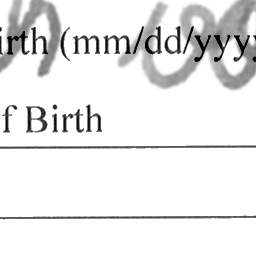 irth (mm/dd/yyyy
f Birth